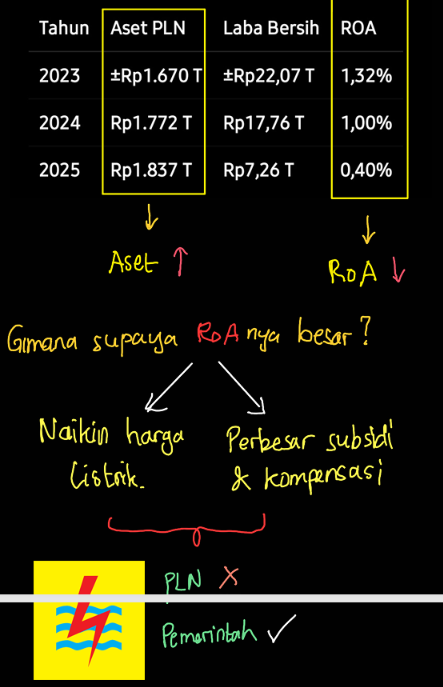 Tahun Aset PLN Laba Bersih ROA
2023 ±Rp1.670 T ±Rp22,07 T 1,32%
2024 Rp1.772 T Rp17,76 T 1,00%
2025 Rp1.837 T Rp7,26 T 0,40%
Aset ↑ RoA ↓
Gimana supaya RoA nya besar?
Naikin harga Perbesar subsidi
listrik. & kompensasi
PLN X
Pemerintah ✓